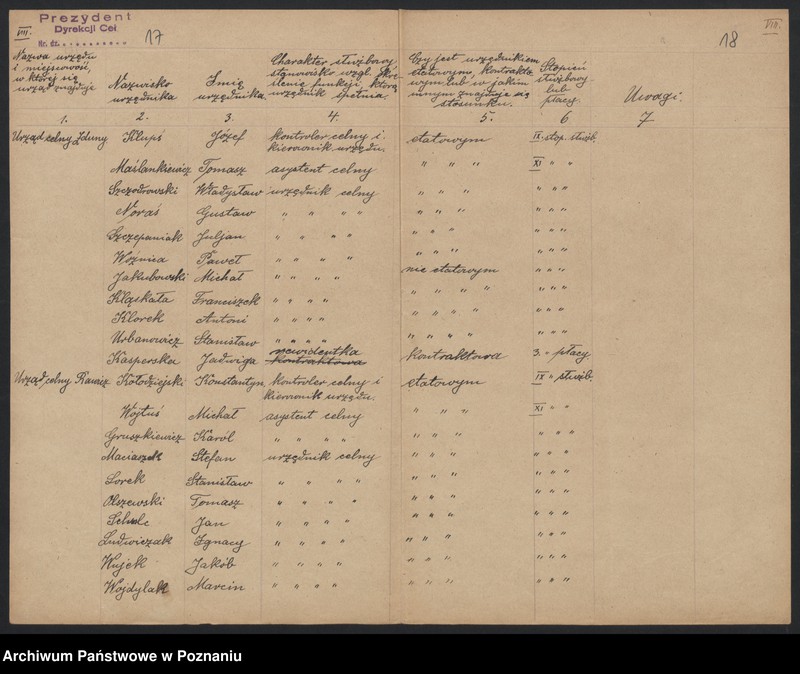 VIII.
Prezydent
Dyrekcji Ceł
Nr. dz.
17
18
VIII.
Nazwa urzędu
i miejscowość,
w której się
urząd znajduje
Nazwisko
urzędnika
Imię
urzędnika
Charakter służbowy,
stanowisko wzgl. okre-
ślenie funkcji, którą
urzędnik spełnia.
Czy jest urzędnikiem
etatowym, kontrakto-
wym lub w jakim
innym znajduje się
stosunku.
Stopień
służbowy
lub
płacy
Uwagi.
1. 2. 3. 4. 5. 6 7
Urząd celny Zduny Klupś Józef kontroler celny i etatowym IX. stop. służb.
kierownik urzędu.
Maślankiewicz Tomasz asystent celny " " " XI " "
Szczodrowski Władysław urzędnik celny " " " " " "
Noraś Gustaw " " " " " " " " " "
Szczepaniak Juljan " " " " " " " " " "
Woźnica Paweł " " " " " " " " " "
Jakubowski Michał " " " " nie etatowym " " "
Kląskała Franciszek " " " " " " " " " " "
Klorek Antoni " " " " " " " " " " "
Urbanowicz Stanisław " " " " " " " " " " "
rewidentka
Kasperska Jadwiga kontraktowa kontraktowa 3. " płacy
Urząd celny Rawicz Kołodziejski Konstantyn kontroler celny i etatowym IX " służb.
kierownik urzędu.
Wojtuś Michał asystent celny " " " XI " "
Gruszkiewicz Karól " " " " " " " " " "
Maciaszek Stefan urzędnik celny " " " " " "
Sorek Stanisław " " " " " " " " " "
Olszewski Tomasz " " " " " " " " " "
Jan " " " " " " " " " "
Ludwiczak Ignacy " " " " " " " " " "
Kujek Jakób " " " " " " " " " "
Wojdylak Marcin " " " " " " " " " "
Archiwum Państwowe w Poznaniu